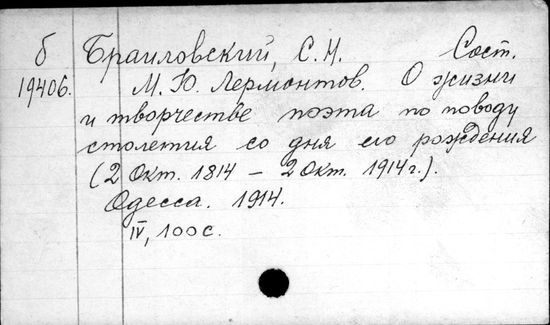 б Браиловский, С. Н. Сост.
19406. М. Ю. Лермонтов. О жизни
и творчестве поэта по поводу
столетия со дня его рождения
(2 Окт. 1814 – 2 Окт. 1914 г.).
Одесса. 1914.
IV, 100 с.